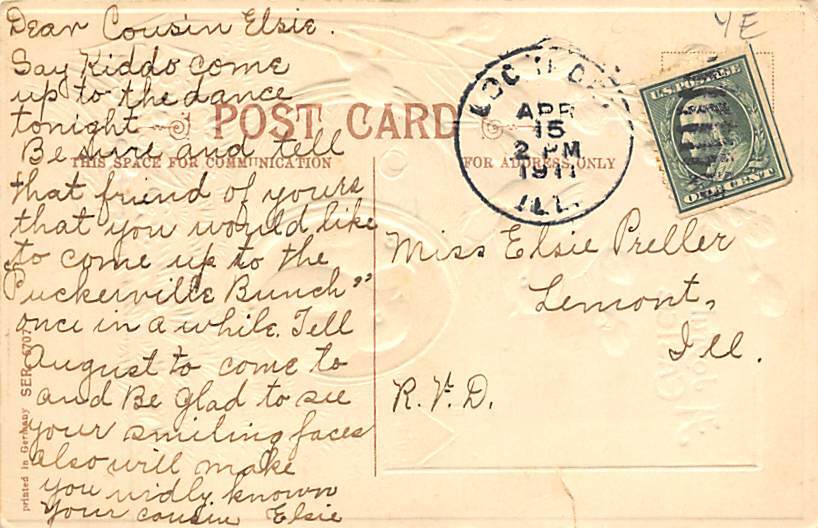 YE
Dear Cousin Elsie.
Say Kiddo come
up to the dance
tonight
Be sure and tell
that friend of yours
that you would like
to come up to the
"Puckerville Bunch"
once in a while. Tell
August to come to
and Be glad to see
your smiling faces
also will make
you widly known
Your cousin Elsie
POST CARD
THIS SPACE FOR COMMUNICATION
FOR ADDRESS ONLY
APR
15
2 PM
1911
ILL.
U.S. POSTAGE
ONE CENT
Miss Elsie Preller
Lemont,
Ill.
R.F.D.
printed in Germany SER. 6707